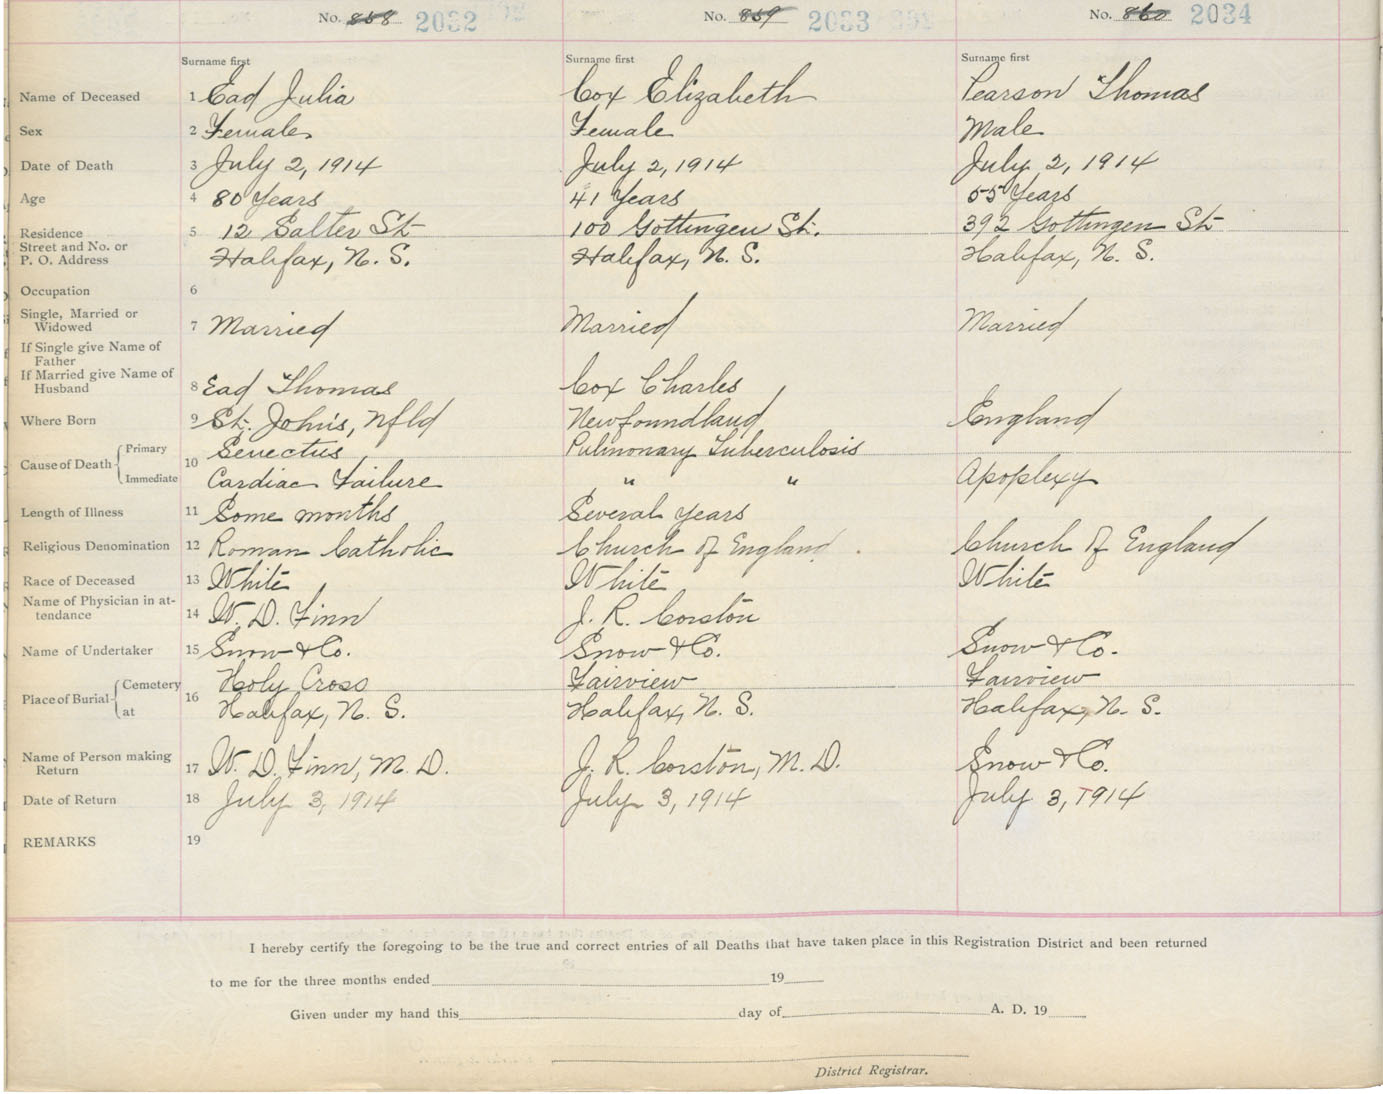 No. 858 2032 No. 859 2033 No. 860 2034
Surname first Surname first Surname first
Name of Deceased 1 Ead Julia Cox Elizabeth Pearson Thomas
Sex 2 Female Female Male
Date of Death 3 July 2, 1914 July 2, 1914 July 2, 1914
Age 4 80 Years 41 Years 55 Years
Residence 5 12 Salter St 100 Gottingen St. 392 Gottingen St
Street and No. or
P. O. Address Halifax, N. S. Halifax, N. S. Halifax, N. S.
Occupation 6
Single, Married or
Widowed 7 Married Married Married
If Single give Name of
Father
If Married give Name of
Husband 8 Ead Thomas Cox Charles
Where Born 9 St. John's, Nfld Newfoundland England
Cause of Death 10 Primary Senectus Pulmonary Tuberculosis
Immediate Cardiac Failure " " Apoplexy
Length of Illness 11 Some months Several years
Religious Denomination 12 Roman Catholic Church of England . Church of England
Race of Deceased 13 White White White
Name of Physician in at-
tendance 14 W. D. Finn J. R. Corston
Name of Undertaker 15 Snow & Co. Snow & Co. Snow & Co.
Place of Burial 16 Cemetery Holy Cross Fairview Fairview
at Halifax, N. S. Halifax, N. S. Halifax, N. S.
Name of Person making
Return 17 W. D. Finn, M. D. J. R. Corston, M. D. Snow & Co.
Date of Return 18 July 3, 1914 July 3, 1914 July 3, 1914
REMARKS 19
I hereby certify the foregoing to be the true and correct entries of all Deaths that have taken place in this Registration District and been returned
to me for the three months ended 19
Given under my hand this day of A. D. 19
District Registrar.